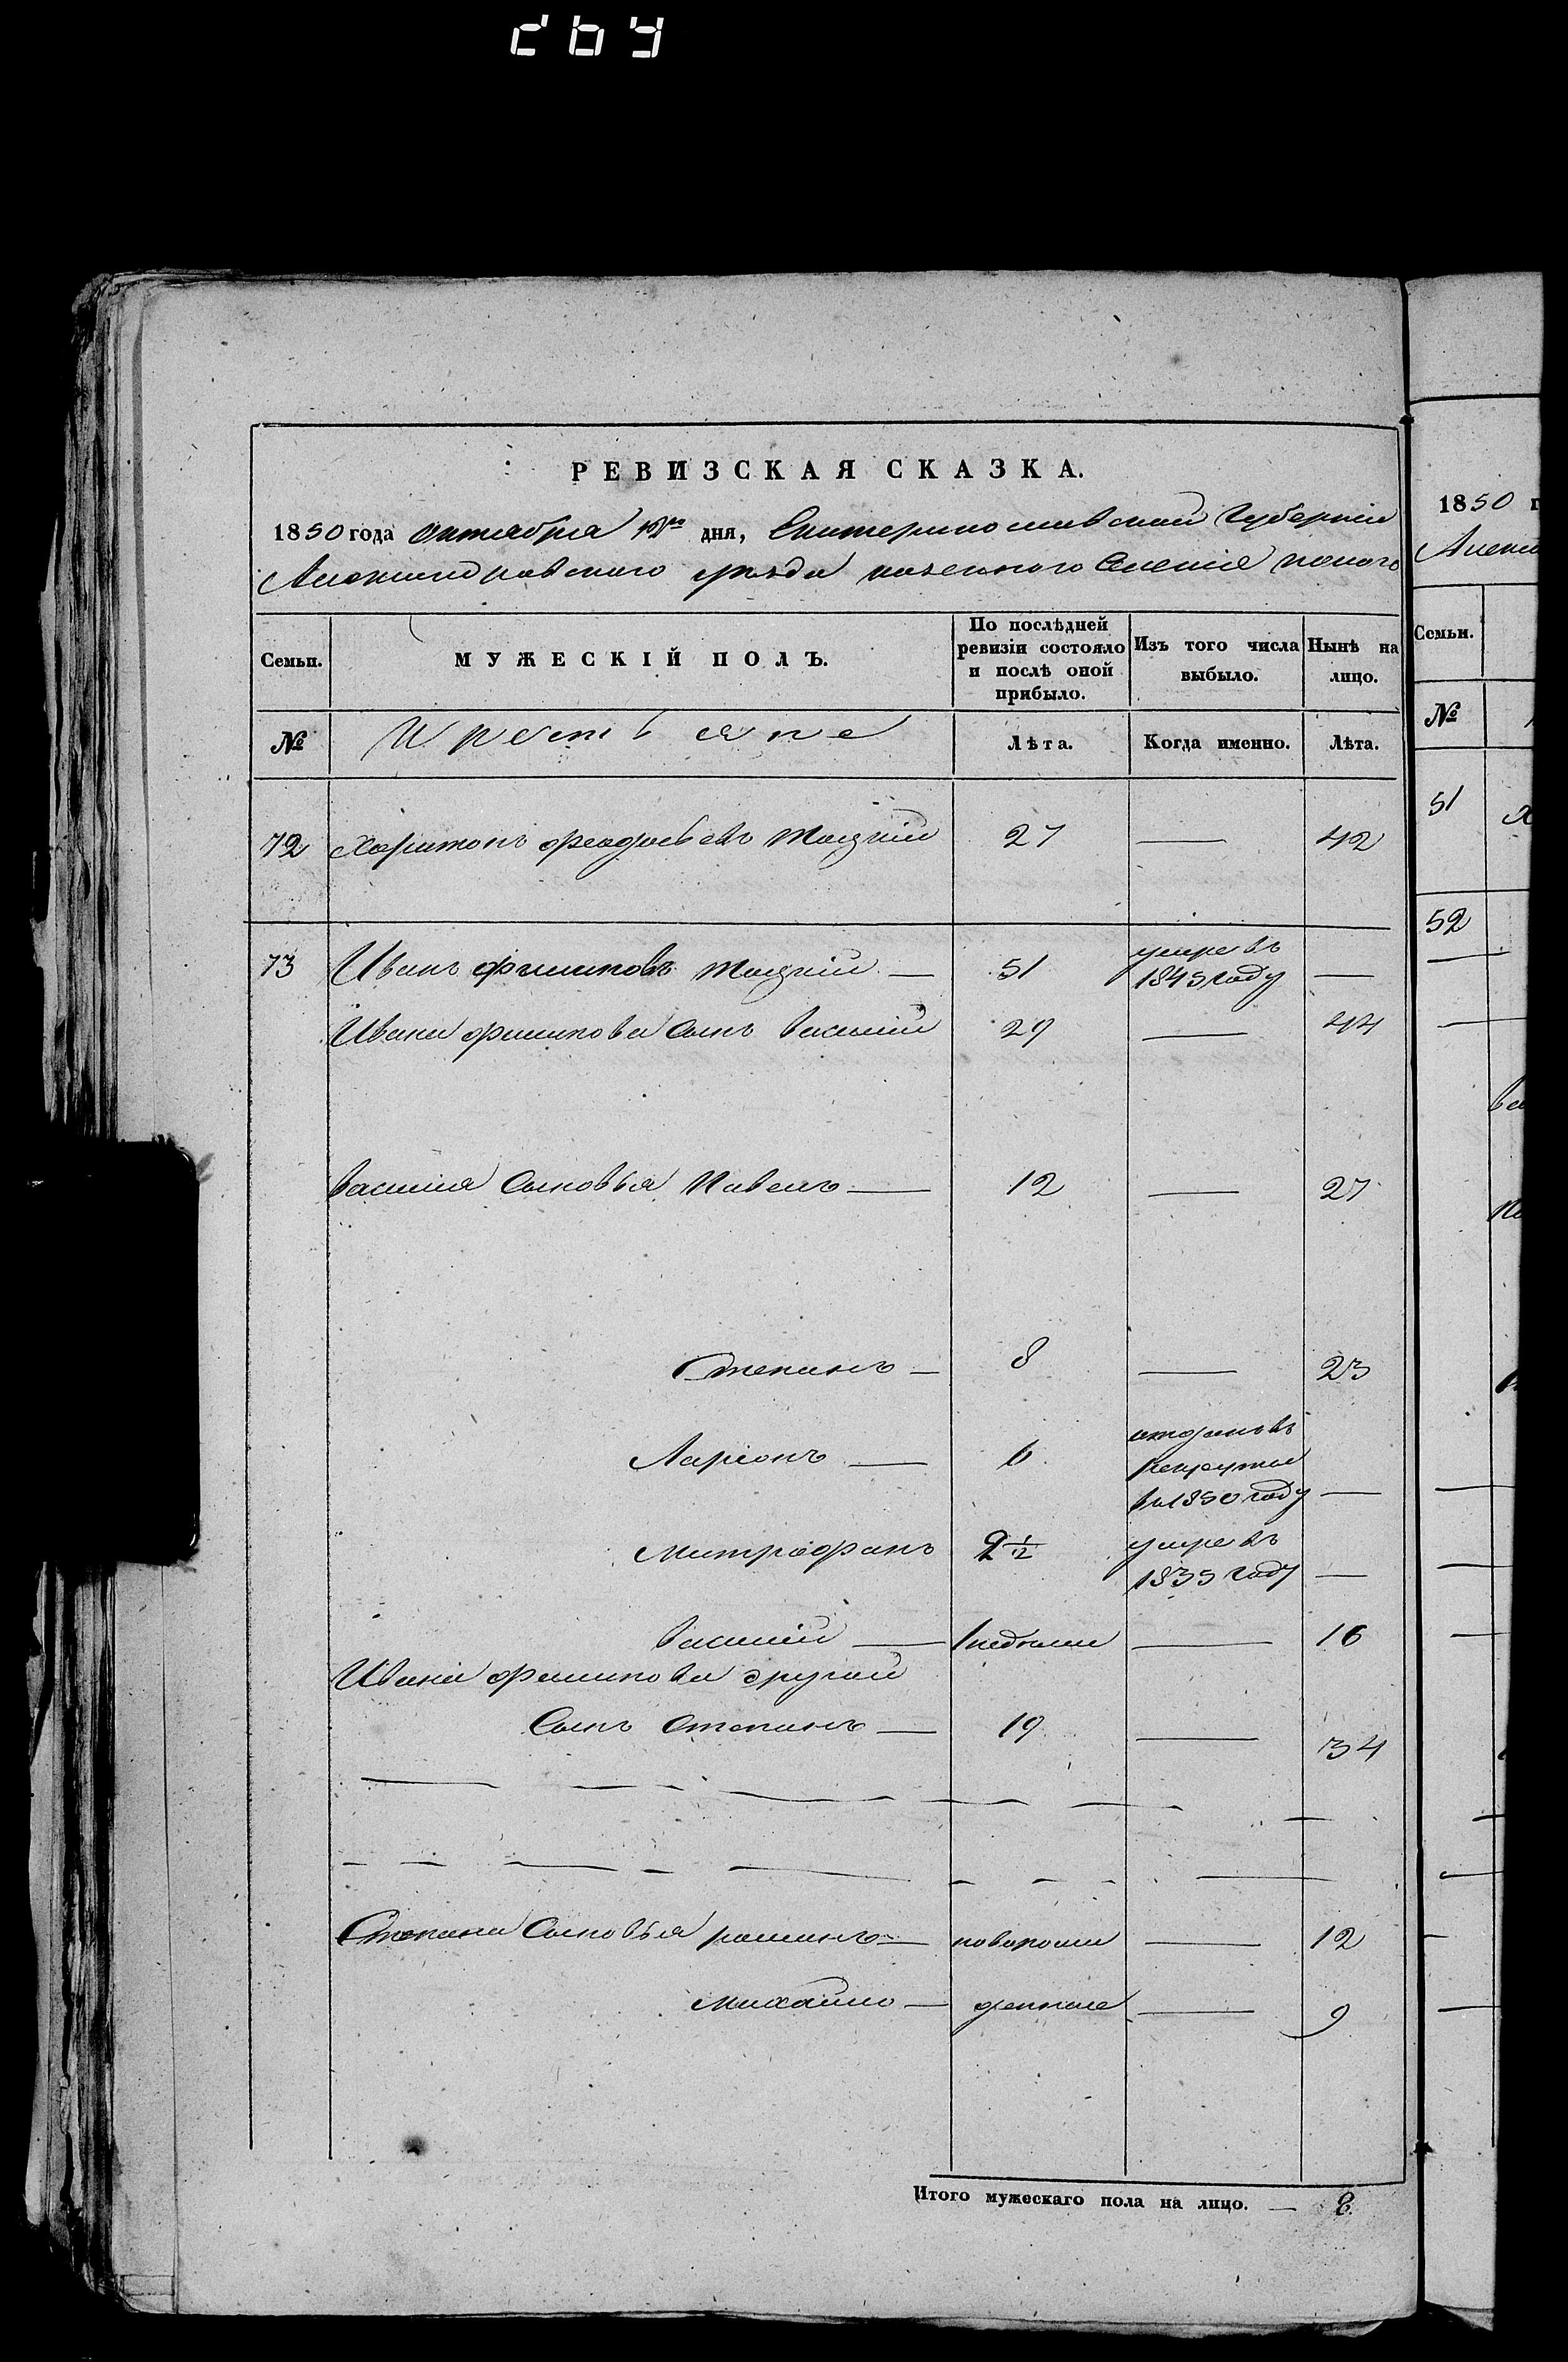 РЕВИЗСКАЯ СКАЗКА.
1850 года октября дня, Екатеринославской Губернии
Александровского уезда казенного Селения
Семьи. МУЖЕСКІЙ ПОЛЪ. По послѣдней ревизіи состояло и послѣ оной прибыло. Изъ того числа выбыло. Нынѣ на лицо.
№ Крестьяне Лѣта. Когда именно. Лѣта.
72 Харитонъ 27 — 42
73 Иванъ Филиповъ 51 умре въ 1845 году —
Ивана Филипова сынъ Василий 29 — 44
Василия сыновья Павелъ — 12 — 27
Степанъ — 8 — 23
Ларіонъ — 6 отданъ въ рекруты въ 1850 году —
Митрофанъ умре въ 1835 году —
Василий — 1 недели — 16
Ивана Филипова другой
сынъ Степанъ — 19 — 34
Степана сыновья — новорож — 12
Михайло — денные — 9
Итого мужескаго пола на лицо. — 8.
1850 г
Алекса
Семьи.
№
51
52